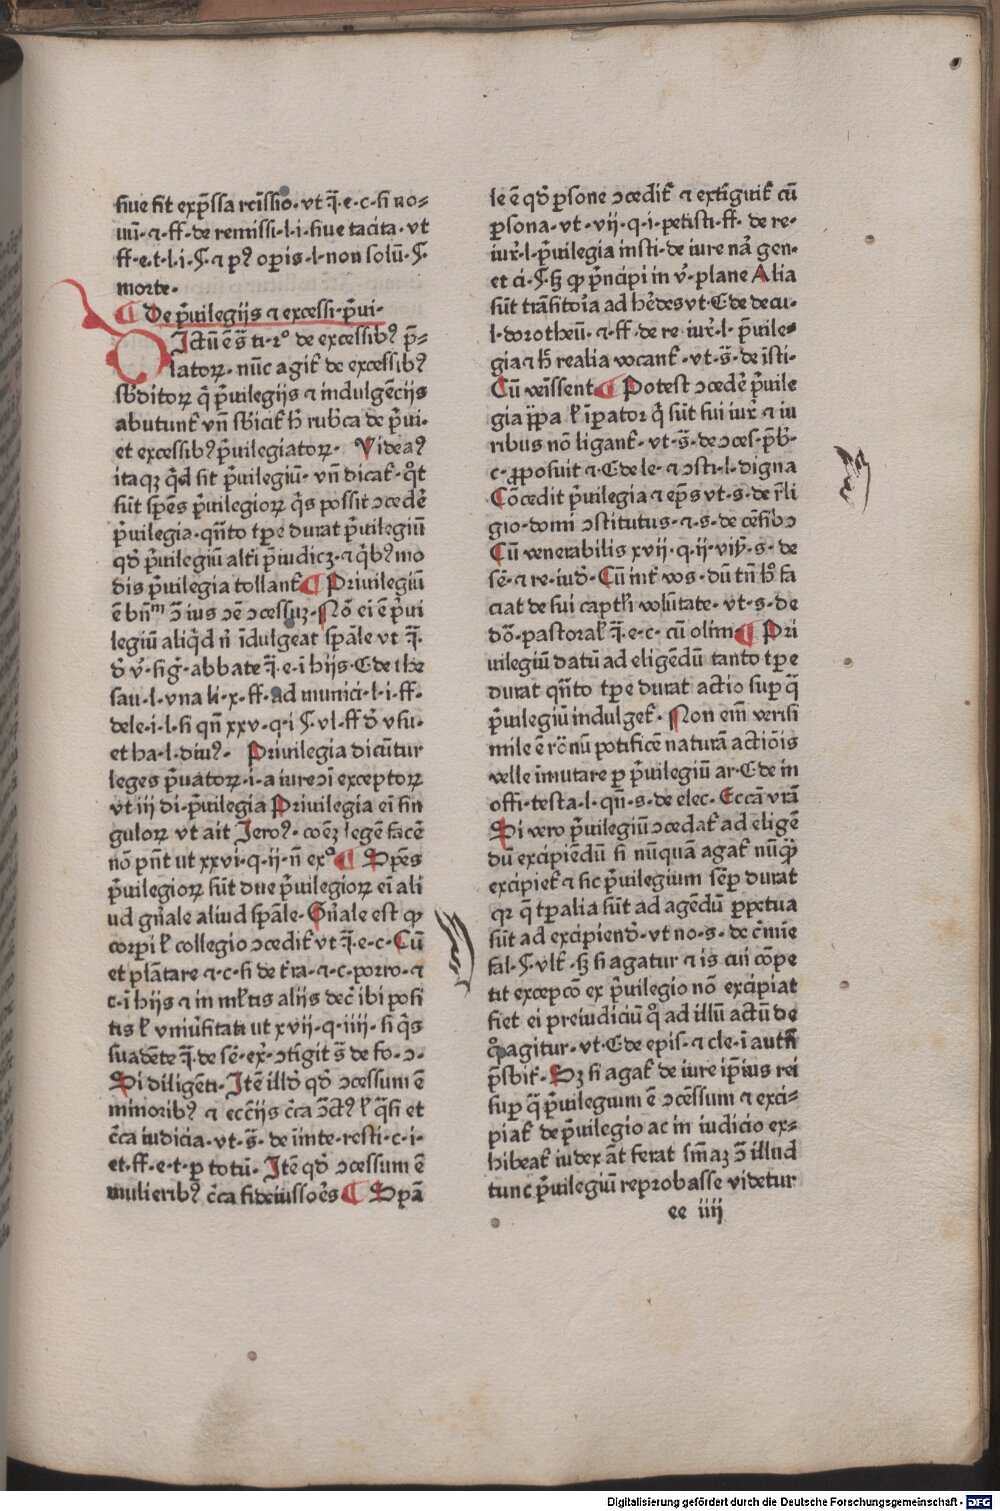 siue sit exp̄ssa rēissio. vt q̄. e. c. si no-
uū. ⁊ ff. de remissi. l. i. siue tacita. vt
ff. e. t. l. i. §. ⁊ pꝰ oꝑis. l. non solū. §.
morte.
¶ De p̄uilegijs ⁊ excessi. p̄ui.
Ictū ē s̄ ti. rͦ de excessibꝰ p̄-
latoꝝ. nūc agit̄ de excessibꝰ
sb̄ditoꝝ q̄ p̄uilegijs ⁊ indulgēcijs
abutunt̄ vn̄ sb̄icit̄ h̄ rub̄ca de p̄ui.
et excessibꝰ p̄uilegiatoꝝ. Videaꝰ
itaqꝫ qͥd sit p̄uilegiū. vn̄ dicat̄. qͦt
sūt sp̄es p̄uilegioꝝ qͥs possit ↄcedē
p̄uilegia. qn̄to tp̄e durat p̄uilegiū
qd̄ p̄uilegiū alt̄i p̄iudicꝫ. ⁊ qͥbꝰ mo
dis p̄uilegia tollant̄ ¶ Priuilegiū
ē bn̄m ↄ̄ ius ↄē ↄcessuꝫ. Nō ei ē p̄ui
legiū aliqͥd n̄ īdulgeat sp̄ale vt q̄.
d̄ v̄. siḡ. abbate q̄. e. i hijs. C de the
sau. l. vna li. x. ff. ad munici. l. i. ff.
dele. i. l. si qn̄ xxv. q. i §. vl. ff d̄ vsu.
et ha. l. diuꝰ. Priuilegia dicūtur
leges p̄uatoꝝ. i. a iure ↄī exceptoꝝ
vt iij di. p̄uilegia Priuilegia ei sin
guloꝝ vt ait Ieroꝰ. coēꝫ legē facē
nō pn̄t ut xxvi. q. ij. n̄ exͦ ¶ Sp̄es
p̄uilegioꝝ sūt due p̄uilegioꝝ ei ali
ud gn̄ale aliud sp̄ale. Gn̄ale est qͦ
corpi l̄ collegio ↄcedit̄ vt q̄. e. c. Cū
et plātare ⁊. c. si de t̄ra. ⁊. c. porro. ⁊
c. i hijs ⁊ in ml̄tis alijs dec̄ ibi posi
tis l̄ vniūsitati ut xvij. q. iiij. si qͥs
suadēte q̄. de sē. ex̄. ↄtīgit s̄ de fo. ↄ.
Si diligēti. Itē illd̄ qd̄ ↄcessum ē
minoribꝰ ⁊ ecc̄ijs c̄ca ↄ̄ctꝰ l̄ qͣsi et
c̄ca iudicia. vt. s̄. de iīnte. resti. c. i.
et. ff. e. t. ꝑ totū. Itē qd̄ ↄcessum ē
mulieribꝰ c̄ca fideiussoēs ¶ Spā
le ē qd̄ ꝑsone ↄcedit̄ ⁊ extīguit̄ cū
ꝑsona. vt. vij. q. i. petisti. ff. de re.
iur̄. l. p̄uilegia insti. de iure nar̄ gen.
et ci. §. hꝫ qͦ p̄ncipi in v̄. plane Alia
sūt trāsitoīa ad hēdes vt. C de decu.
l. dorotheū. ⁊. ff. de re iur̄. l. p̄uile-
gia ⁊ h̄ realia vocant̄. vt. s̄. de īsti.
Cū venīssent ¶ Potest ↄcedē p̄uile
gia p̄pa l̄ īꝑator qͥ sūt sui iur̄ ⁊ iu
ribus nō ligant̄. vt. s̄. de ↄces. p̄b̄.
c. ꝓposuit ⁊. C de le. ⁊ ↄsti. l. digna
Cōcedit p̄uilegia ⁊ ep̄s vt. s. de r̄li
gio. domi ↄstitutus. ⁊. s. de cēsibꝰ
Cū venerabilis xvij. q. ij. viij. s. de
sē. ⁊ re. iud̄. Cū int̄ vos. dū tn̄ hͦ fa
ciat de sui capt̄li volūtate. vt. s. de
dō. pastoral̄ q̄. e. c. cū olim ¶ Pri
uilegiū datū ad eligēdū tanto tp̄e
durat qn̄to tp̄e durat actio suꝑ q̄
p̄uilegiū indulget̄. Non eīm verisi
mile ē rōnū potificē naturā actiōis
velle īmutare ꝑ p̄uilegiū ar. C de in
offi. testa. l. qn̄. s. de elec. Eccā vrā
Si vero p̄uilegiū ↄcedat̄ ad eligē
dū excipiēdū si nūquā agat̄ nūqͣ
excipiet̄ ⁊ sic p̄uilegium sēꝑ durat
qꝛ q̄ tꝑalia sūt ad agēdū ꝑpetua
sūt ad excipiend̄. vt no. s. de c̄mīe
fal. §. vlt̄. hꝫ si agatur ⁊ is cui cōpe
tit excepcō ex p̄uilegio nō excipiat
fiet ei preiudiciū qͦ ad illū actū de
qͦ agitur. vt. C de epis. ⁊ cle. i autn̄
p̄sbit̄. Sꝫ si agat̄ de iure ip̄ius rei
suꝑ q̄ p̄uilegium ē ↄcessum ⁊ exci-
piat̄ de p̄uilegio ac in iudicio ex-
hibeat̄ iudex āt ferat sm̄aꝫ ↄ̄ illud
tunc p̄uilegiū reprobasse videtur
ee iiij
Digitalisierung gefördert durch die Deutsche Forschungsgemeinschaft - DFG